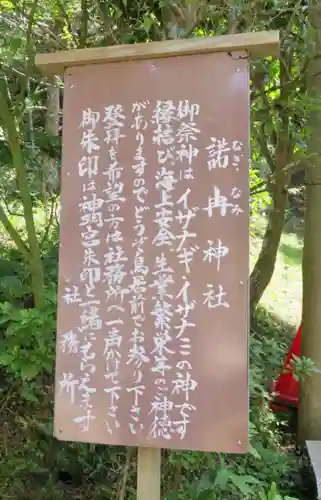 諾冉神社
なぎ なみ
御祭神は イザナギ・イザナミの神です
縁結び、海上安全、生業繁栄年の御神徳
がありますのでどうぞ鳥居前でお参り下さい
登拝を希望の方は社務所へ一声かけて下さい
御朱印は神明宮朱印と一緒にもらえます
社務所